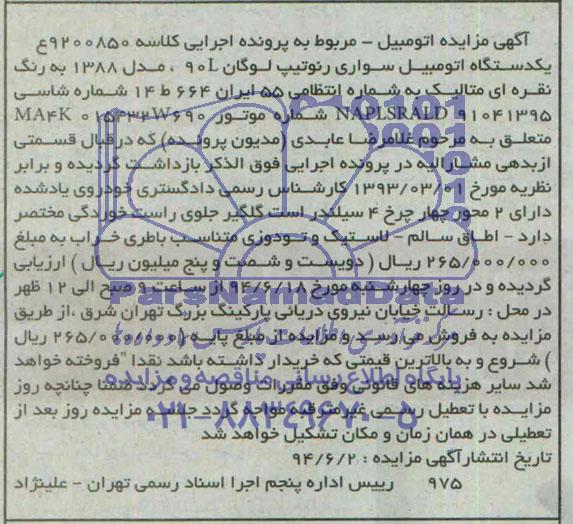 آگهی مزایده اتومبیل – مربوط به پرونده اجرایی کلاسه ۹۲۰۰۸۵۰ع
یکدستگاه اتومبیل سواری رنوتیپ لوگان ۹۰L ، مدل ۱۳۸۸ به رنگ
نقره ای متالیک به شماره انتظامی ۵۵ ایران ۶۶۴ ط ۱۴ شماره شاسی
NAPLSRALD ۹۱۰۴۱۳۹۵ شماره موتور MA۴K ۰۱۵۴۳۲W۶۹۰
متعلق به مرحوم غلامرضا عابدی (مدیون پرونده) که درقبال قسمتی
ازبدهی مشارالیه در پرونده اجرایی فوق الذکر بازداشت گردیده و برابر
نظریه مورخ ۱۳۹۳/۰۳/۰۱ کارشناس رسمی دادگستری خودروی یادشده
دارای ۲ محور چهار چرخ ۴ سیلندر است گلگیر جلوی راست خوردگی مختصر
دارد – اطاق سالم – لاستیک و تودوزی متناسب باطری خراب به مبلغ
۲۶۵/۰۰۰/۰۰۰ ریال ( دویست و شصت و پنج میلیون ریال ) ارزیابی
گردیده و در روز چهارشنبه مورخ ۹۴/۶/۱۸ از ساعت ۹ صبح الی ۱۲ ظهر
در محل : رسالت خیابان نیروی دریائی پارکینگ بزرگ تهران شرق ،از طریق
مزایده به فروش می رسد و مزایده از مبلغ پایه ( ۲۶۵/۰۰۰/۰۰۰ ریال
) شروع و به بالاترین قیمتی که خریدار داشته باشد نقدا" فروخته خواهد
شد سایر هزینه های قانونی وفق مقررات وصول می گردد ضمنا چنانچه روز
مزایده با تعطیل رسمی غیرمترقبه مواجه گردد جلسه مزایده روز بعد از
تعطیلی در همان زمان و مکان تشکیل خواهد شد
تاریخ انتشارآگهی مزایده : ۹۴/۶/۲
۹۷۵ رییس اداره پنجم اجرا اسناد رسمی تهران – علینژاد
ParsNamadData
پایگاه اطلاع رسانی مناقصه و مزایده
۰۲۱-۸۸۳۴۹۶۷۰-۵